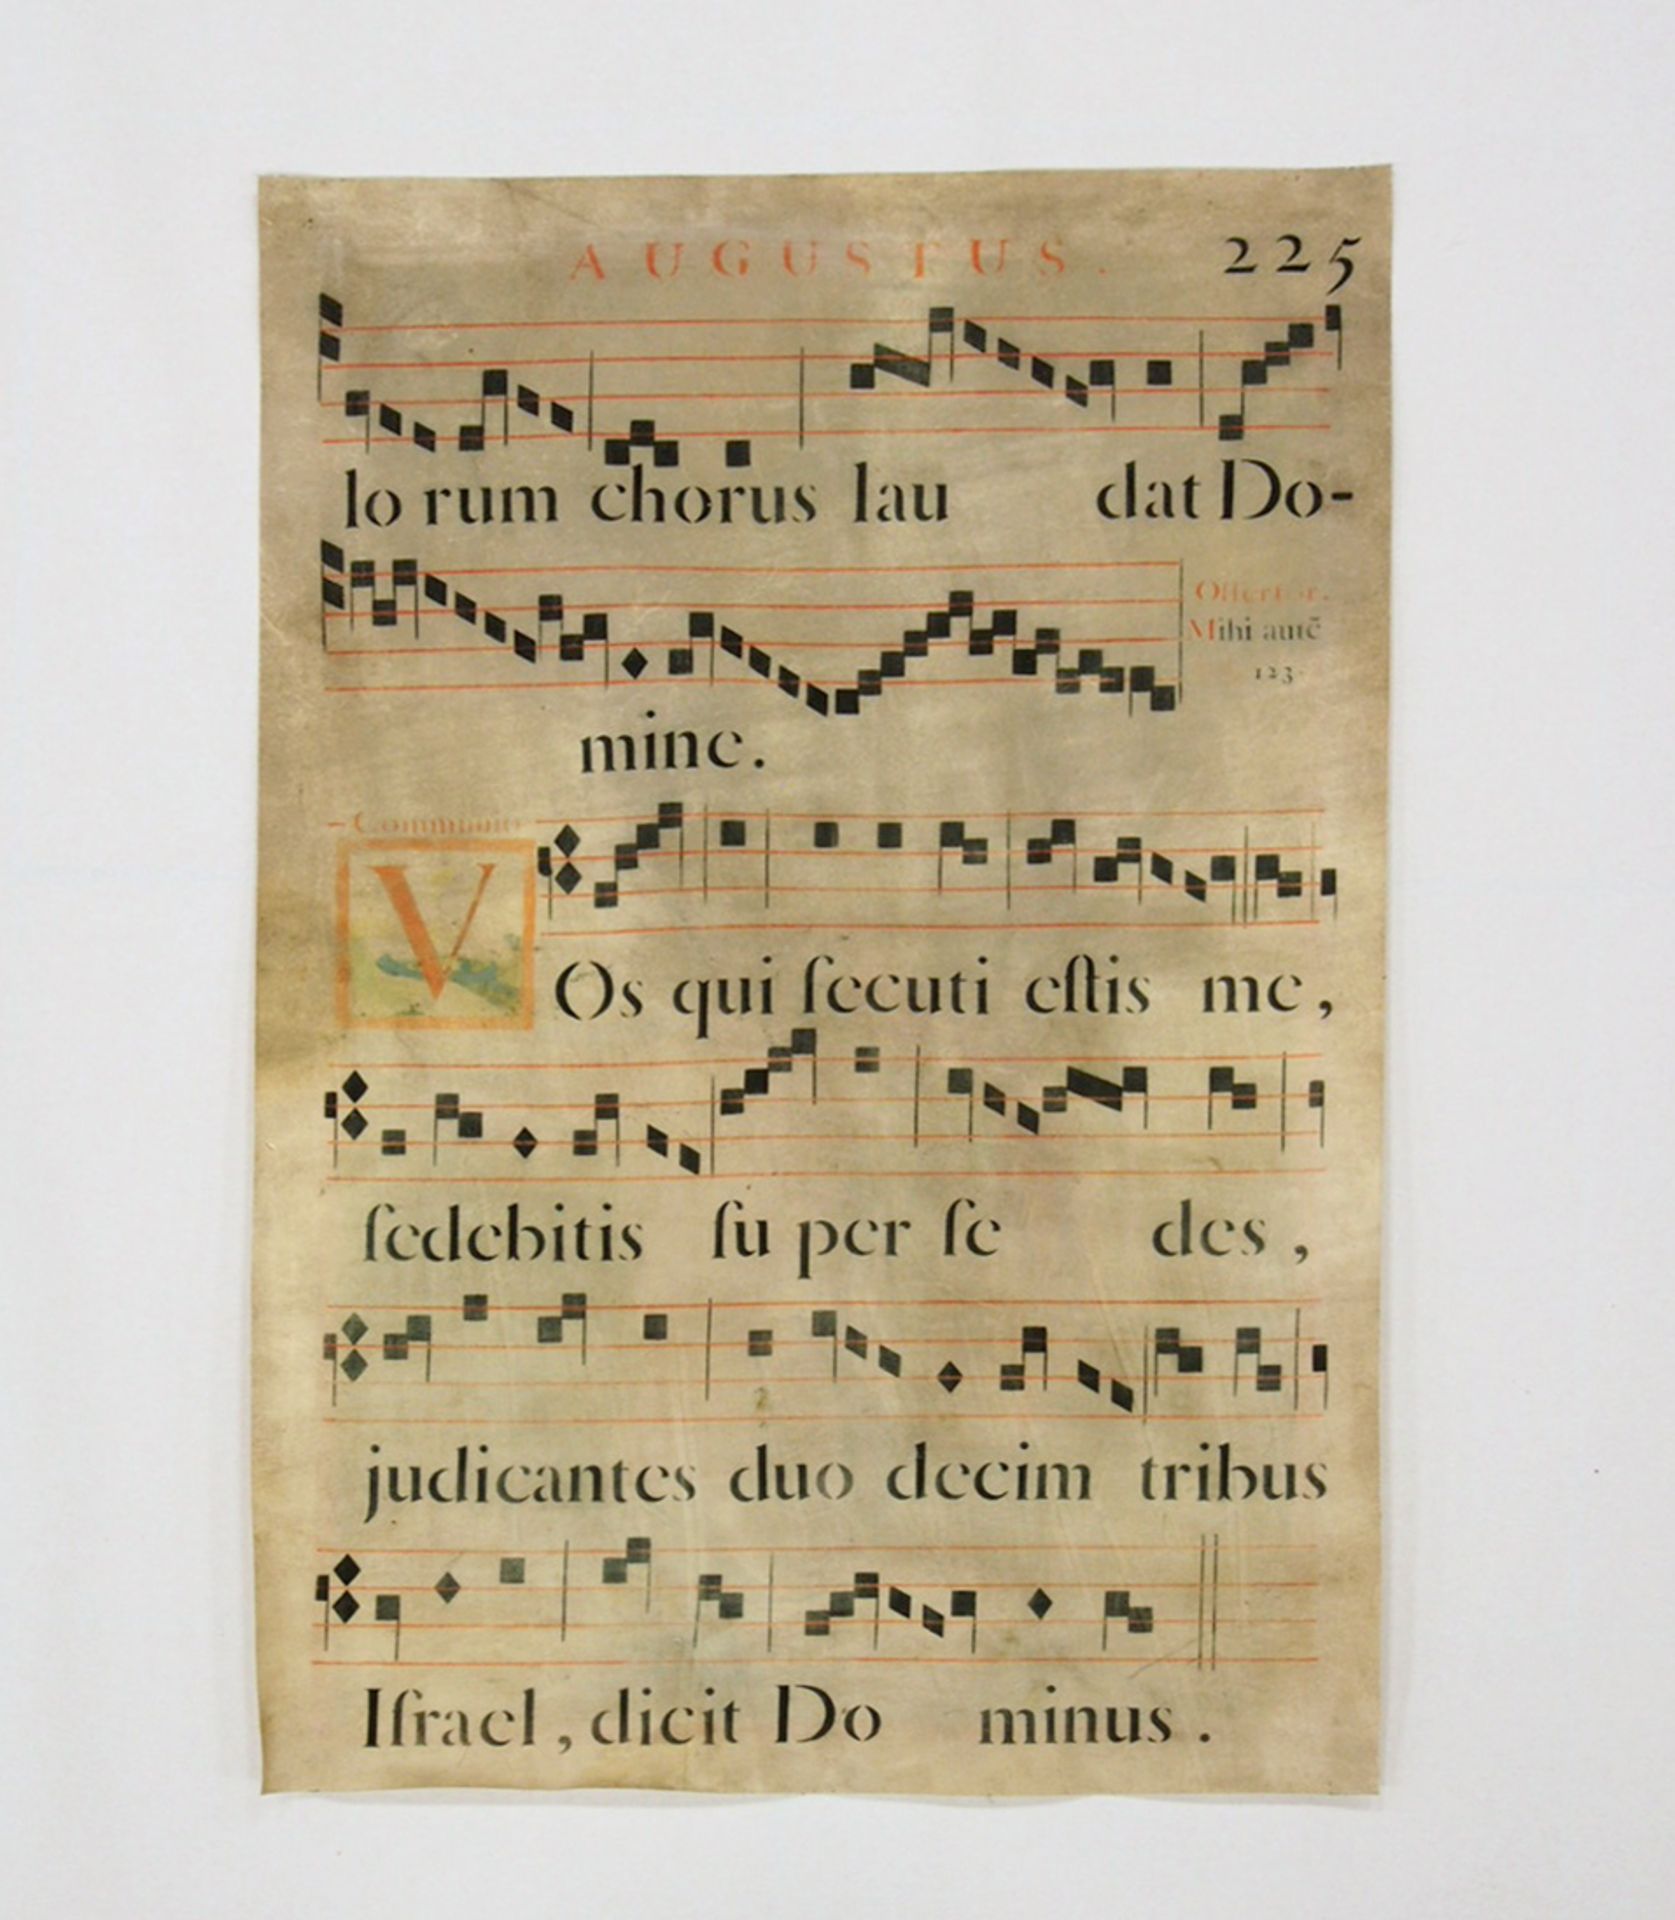 AUGUSTUS. 225
lo rum chorus lau dat Do-
Offertor.
Mihi autē
123.
mine.
Communio
VOs qui ſecuti eſtis me,
ſedebitis ſu per ſe des,
judicantes duo decim tribus
Iſrael, dicit Do minus.